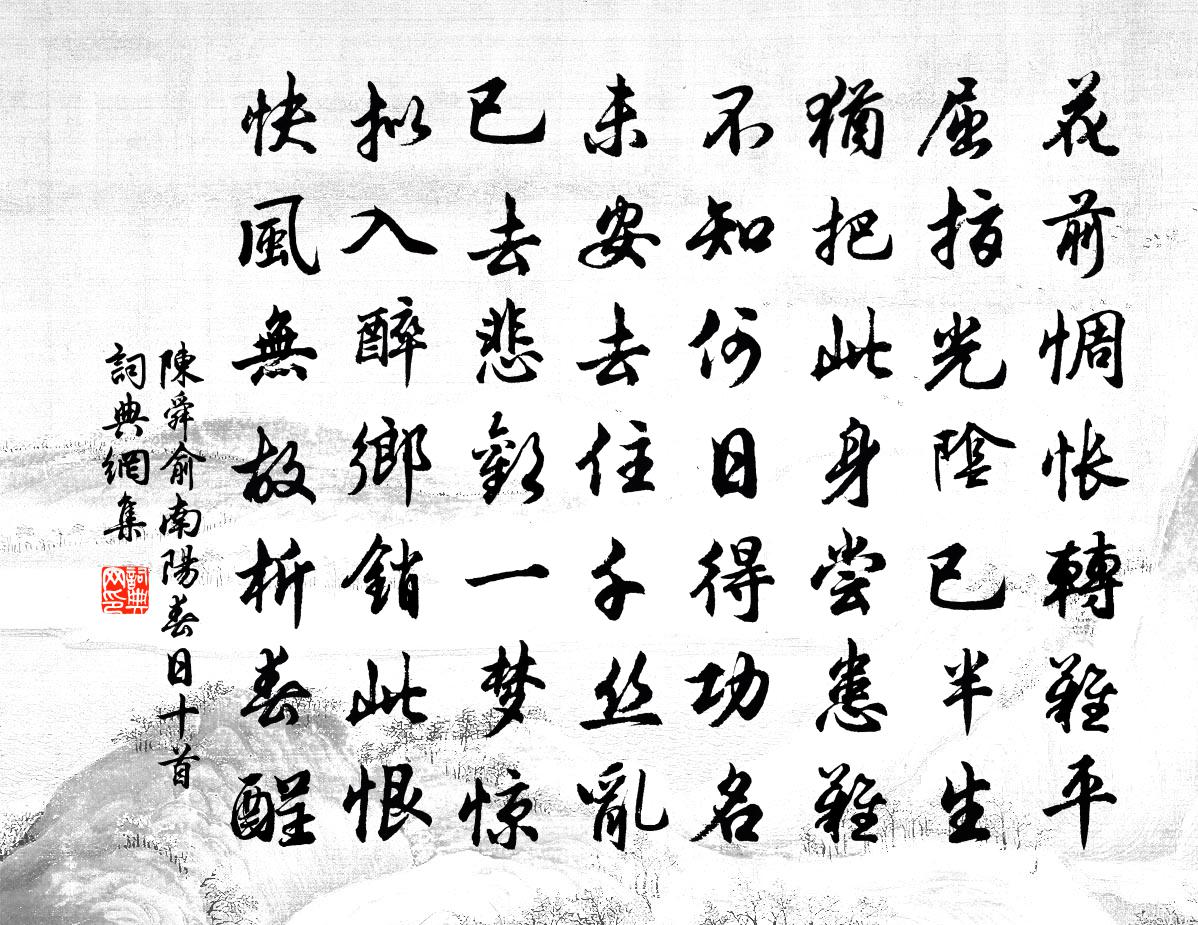 花前惆怅轉難平
屈指光陰已半生
猶把此身嘗患難
不知何日得功名
未安去住千丝亂
已去悲歡一梦惊
拟入醉鄉銷此恨
快風無故析春醒
陳舜俞南陽春日十首
詞典網集
詞典网印